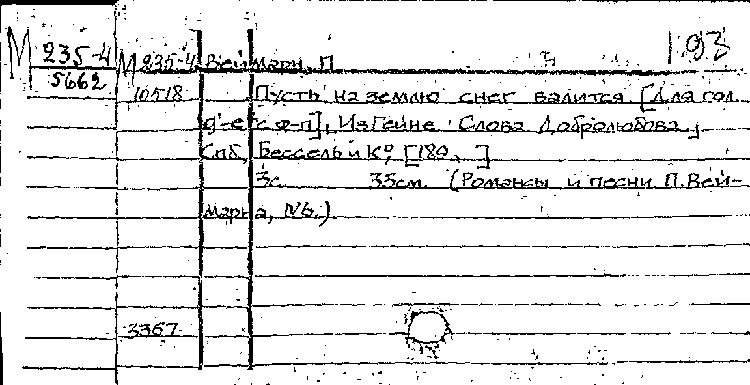 М 235-4 М 235-4 Веймарн, П. 193
5662 10518 Пусть на землю снег валится [Для гол.
d'-e² с ф-п], Из Гейне. Слова Добролюбова,
Спб, Бессель и Ко, [189. ]
3с. 33см. (Романсы и песни П. Вей-
марна, №6.)
3367